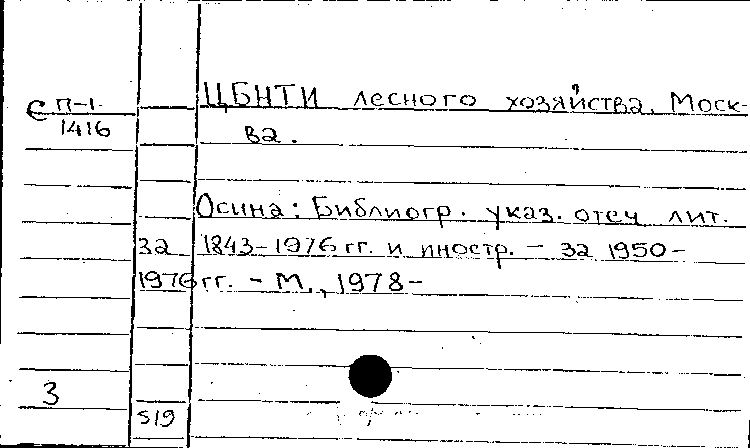 ЦБНТИ лесного хозяйства. Моск-
С П-1
1416
ва.
Осина: Библиогр. указ. отеч лит.
за 1843-1976 гг. и иностр. - за 1950-
1976 гг. - М., 1978-
3
519